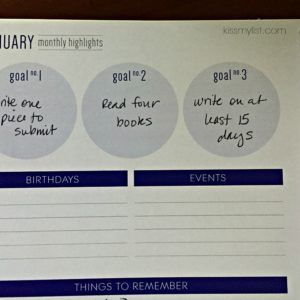 kissmylist.com
NUARY monthly highlights
goal no.1
goal no.2
goal no.3
rite one
piece to
submit
Read four
books
write on at
least 15
days
BIRTHDAYS
EVENTS
THINGS TO REMEMBER